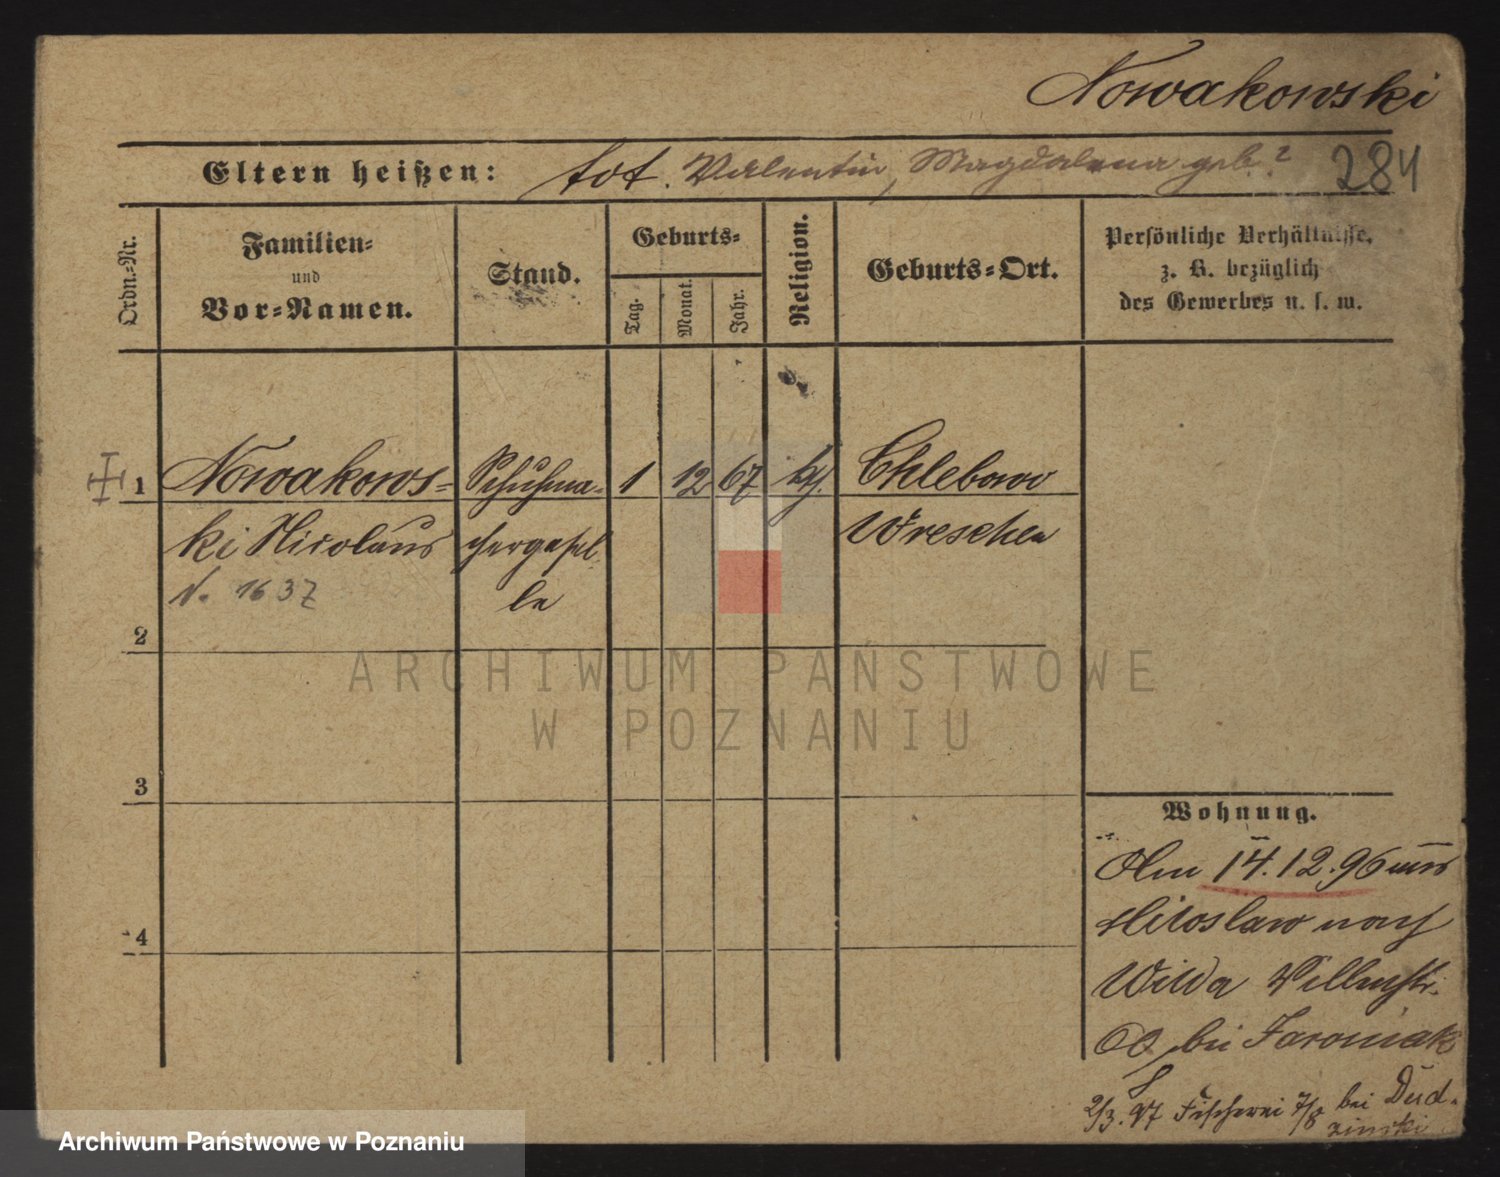 Nowakowski
Eltern heißen: tot. Valentin, Magdalena geb. ? 284
Ordn.-Nr.
Familien-
und
Vor-Namen.
Stand.
Geburts-
Tag.
Monat.
Jahr.
Religion.
Geburts-Ort.
Persönliche Verhältnisse,
z. B. bezüglich
des Gewerbes u. s. w.
1 Nowakows- Schuhma- 1 12 67 kth. Chlebowo
ki Nicolaus chergesel- Wreschen
N. 1637 le
2
3
4
Wohnung.
Am 14.12.96 aus
Miloslaw nach
Wilda
bei Jaroniak
2/3. 97 Fischerei 7/8 bei Dud-
zinski
ARCHIWUM PAŃSTWOWE
W POZNANIU
Archiwum Państwowe w Poznaniu